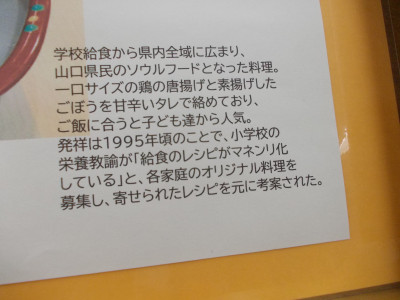 学校給食から県内全域に広まり、
山口県民のソウルフードとなった料理。
一口サイズの鶏の唐揚げと素揚げした
ごぼうを甘辛いタレで絡めており、
ご飯に合うと子ども達から人気。
発祥は1995年頃のことで、小学校の
栄養教諭が「給食のレシピがマネンリ化
している」と、各家庭のオリジナル料理を
募集し、寄せられたレシピを元に考案された。